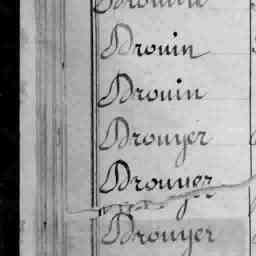 Drouin
Drouin
Drouyer
Drouyer
Drouyer